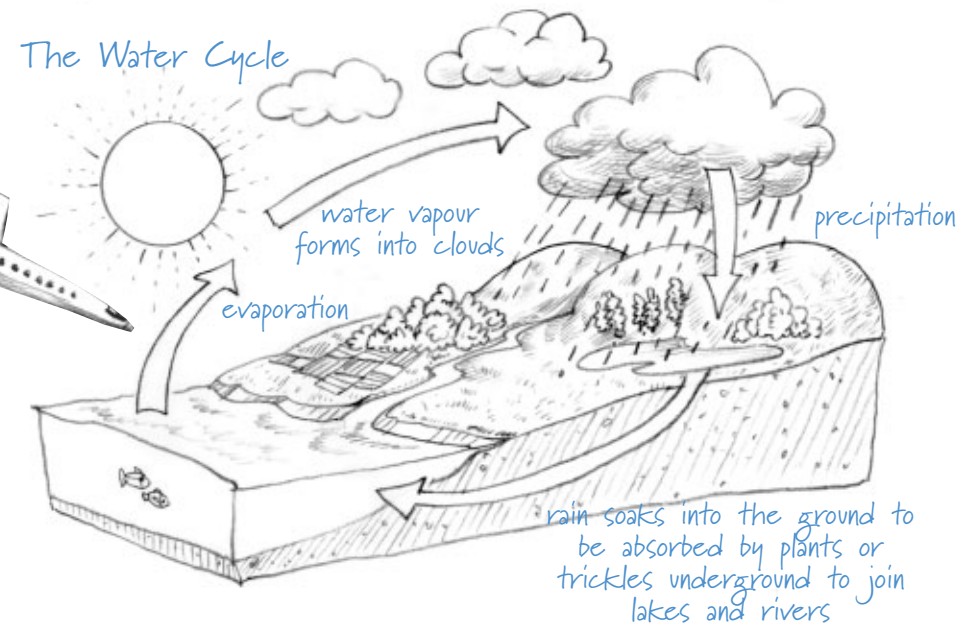 The Water Cycle
water vapour
forms into clouds
precipitation
evaporation
rain soaks into the ground to
be absorbed by plants or
trickles underground to join
lakes and rivers